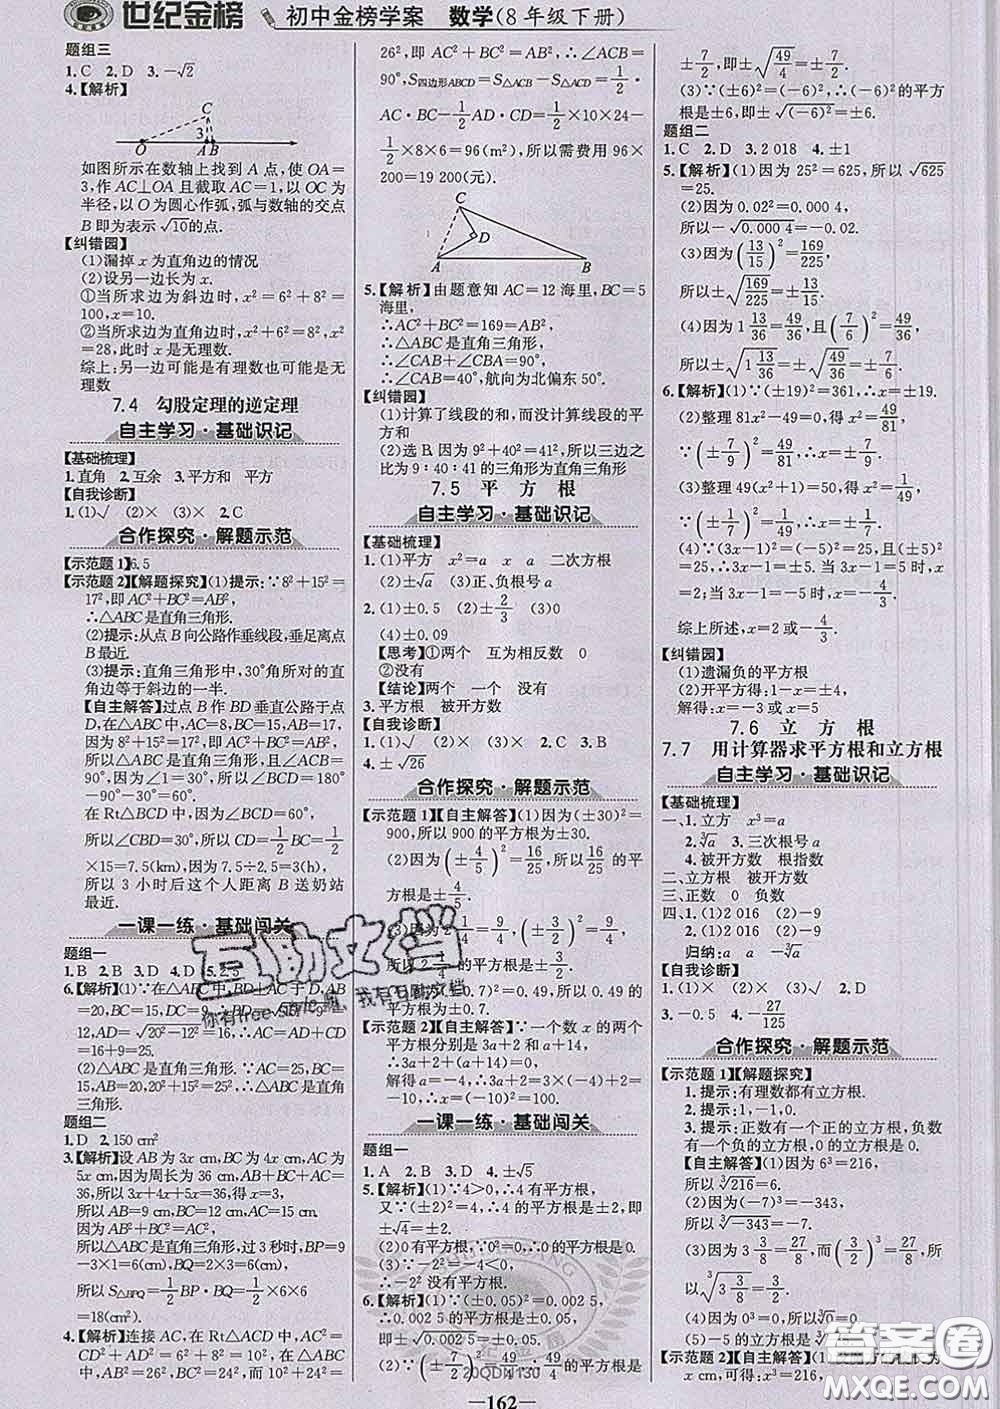 世纪金榜 初中金榜学案 数学(8年级下册)
题组三
1.C 2.D 3.-√2
4.【解析】
C
3
O A B
如图所示在数轴上找到A点,使OA=
3,作AC⊥OA且截取AC=1,以OC为
半径,以O为圆心作弧,弧与数轴的交点
B即为表示√10的点.
【纠错园】
(1)漏掉x为直角边的情况
(2)设另一边长为x.
①当所求边为斜边时,x²=6²+8²=
100,x=10.
②当所求边为直角边时,x²+6²=8²,x²
=28,此时x是无理数.
综上:另一边可能是有理数也可能是无
理数
7.4 勾股定理的逆定理
自主学习·基础识记
【基础梳理】
1.直角 2.互余 3.平方和 平方
【自我诊断】
1.(1)√ (2)× (3)× 2.C
合作探究·解题示范
【示范题1】6.5
【示范题2】【解题探究】(1)提示:∵8²+15²=
17²,即AC²+BC²=AB²,
∴△ABC是直角三角形.
(2)提示:从点B向公路作垂线段,垂足离点
B最近.
(3)提示:直角三角形中,30°角所对的直
角边等于斜边的一半.
【自主解答】过点B作BD垂直公路于点
D,在△ABC中,AC=8,BC=15,AB=17,
因为8²+15²=17²,所以△ABC是直角
三角形,∠ACB=90°,所以∠BCD=180°
-90°-30°=60°.
在Rt△BCD中,因为∠BCD=60°,
所以∠CBD=30°,所以CD=1/2BC=1/2
×15=7.5(km),因为7.5÷2.5=3(h),
所以3小时后这个人距离B送奶站
最近.
一课一练·基础闯关
题组一
1.B 2.B 3.D 4.D 5.2.5
6.【解析】(1)∵在△ABC中,BD⊥AC于D,AB
=20,BC=15,DC=9,∴BD=√15²-9²=
12,AD=√20²-12²=16,∴AC=AD+CD
=16+9=25.
(2)△ABC是直角三角形.∵AC=25,BC=
15,AB=20,20²+15²=25²,∴△ABC是直
角三角形.
题组二
1.D 2.150 cm²
3.【解析】设AB为3x cm,BC为4x cm,AC为
5x cm,因为周长为36 cm,AB+BC+AC=36,
所以3x+4x+5x=36,得x=3,
所以AB=9 cm,BC=12 cm,AC=15 cm.
因为AB²+BC²=AC²,
所以△ABC是直角三角形,过3秒时,BP=9
-3×1=6(cm),BQ=2×3=6(cm),
所以S△BPQ=1/2BP·BQ=1/2×6×6
=18(cm²).
4.【解析】连接AC,在Rt△ACD中,AC²=
CD²+AD²=6²+8²=10²,在△ABC
中,AB²=26²,BC²=24²,而10²+24²=
26²,即AC²+BC²=AB²,∴∠ACB=
90°,S四边形ABCD=S△ACB-S△ACD=1/2
·AC·BC-1/2AD·CD=1/2×10×24-
1/2×8×6=96(m²),所以需费用96×
200=19 200(元).
C
D
A B
5.【解析】由题意知AC=12海里,BC=5
海里,
∴AC²+BC²=169=AB²,
∴△ABC是直角三角形,
∴∠CAB+∠CBA=90°,
∴∠CAB=40°,航向为北偏东50°.
【纠错园】
(1)计算了线段的和,而没计算线段的平
方和
(2)选B.因为9²+40²=41²,所以三边之
比为9∶40∶41的三角形为直角三角形
7.5 平方根
自主学习·基础识记
【基础梳理】
1.(1)平方 x²=a x a 二次方根
(2)±√a (3)正、负根号a
2.(1)±0.5 (2)±2/3 (3)0
(4)±0.09
【思考】①两个 互为相反数 0
②没有
【结论】两个 一个 没有
3.平方根 被开方数
【自我诊断】
1.(1)√ (2)× (3)× 2.C 3.B
4.±√26
合作探究·解题示范
【示范题1】【自主解答】(1)因为(±30)²=
900,所以900的平方根为±30.
(2)因为(±4/5)²=16/25,所以16/25的平
方根是±4/5.
(3)因为2 1/4=9/4,(±3/2)²=9/4,
所以2 1/4的平方根是±3/2.
(4)因为(±0.7)²=0.49,所以0.49的
平方根是±0.7.
【示范题2】【自主解答】∵一个数x的两个
平方根分别是3a+2和a+14,
∴3a+2+(a+14)=0,
解得a=-4,∴3a+2=3×(-4)+2
=-10,∴x=(-10)²=100.
一课一练·基础闯关
题组一
1.A 2.B 3.D 4.±√5
5.【解析】(1)∵4>0,∴4有平方根,
又∵(±2)²=4,∴4的平方根是±2,即
±√4=±2.
(2)0有平方根,∵0²=0,∴0的平方根是0.
(3)∵-2²=-4<0,
∴-2²没有平方根.
6.【解析】(1)∵(±0.05)²=0.002 5,
∴0.002 5的平方根是±0.05,
即±√0.002 5=±0.05.
(2)∵(±7/2)²=49/4,∴49/4的平方根是
±7/2,即±√49/4=±7/2.
(3)∵(±6)²=(-6)²,∴(-6)²的平方
根是±6,即±√(-6)²=±6.
题组二
1.C 2.D 3.2 018 4.±1
5.【解析】(1)因为25²=625,所以√625
=25.
(2)因为0.02²=0.000 4,
所以-√0.000 4=-0.02.
(3)因为(13/15)²=169/225,
所以±√169/225=±13/15.
(4)因为1 13/36=49/36,且(7/6)²=49/36,
所以±√1 13/36=±√49/36=±7/6.
6.【解析】(1)∵(±19)²=361,∴x=±19.
(2)整理81x²-49=0,得x²=49/81,
∵(±7/9)²=49/81,∴x=±7/9.
(3)整理49(x²+1)=50,得x²=1/49,
∵(±1/7)²=1/49,∴x=±1/7.
(4)∵(3x-1)²=(-5)²=25,(±5)²
=25,∴3x-1=±5,当3x-1=5时,x
=2;当3x-1=-5时,x=-4/3.
综上所述,x=2或-4/3.
【纠错园】
(1)遗漏负的平方根
(2)开平方得:1-x=±4,
解得:x=-3或x=5
7.6 立方根
7.7 用计算器求平方根和立方根
自主学习·基础识记
【基础梳理】
一、1.立方 x³=a
2.³√a 3.三次根号a
4.被开方数 根指数
二、立方根 被开方数
三、正数 0 负数
四、1.(1)2 016 (2)-9
2.(1)2 016 (2)-9
归纳:a a -³√a
【自我诊断】
1.(1)× (2)× (3)√ 2.D
3.-0.5 4.-27/125
合作探究·解题示范
【示范题1】【解题探究】
1.提示:有理数都有立方根.
2.提示:1,-1,0.
3.提示:正数有一个正的立方根,负数
有一个负的立方根,0的立方根是0.
【自主解答】(1)因为6³=216,
所以³√216=6.
(2)因为(-7)³=-343,
所以³√-343=-7.
(3)因为3 3/8=27/8,而(3/2)³=27/8,所
以³√3 3/8=3/2.
(4)因为0³=0,所以³√0=0.
(5)-5的立方根是³√-5.
x cm,可得
162
互助文档
你有free style嘛,我有互助文档
20QDN130
答案圈
MXQE.COM